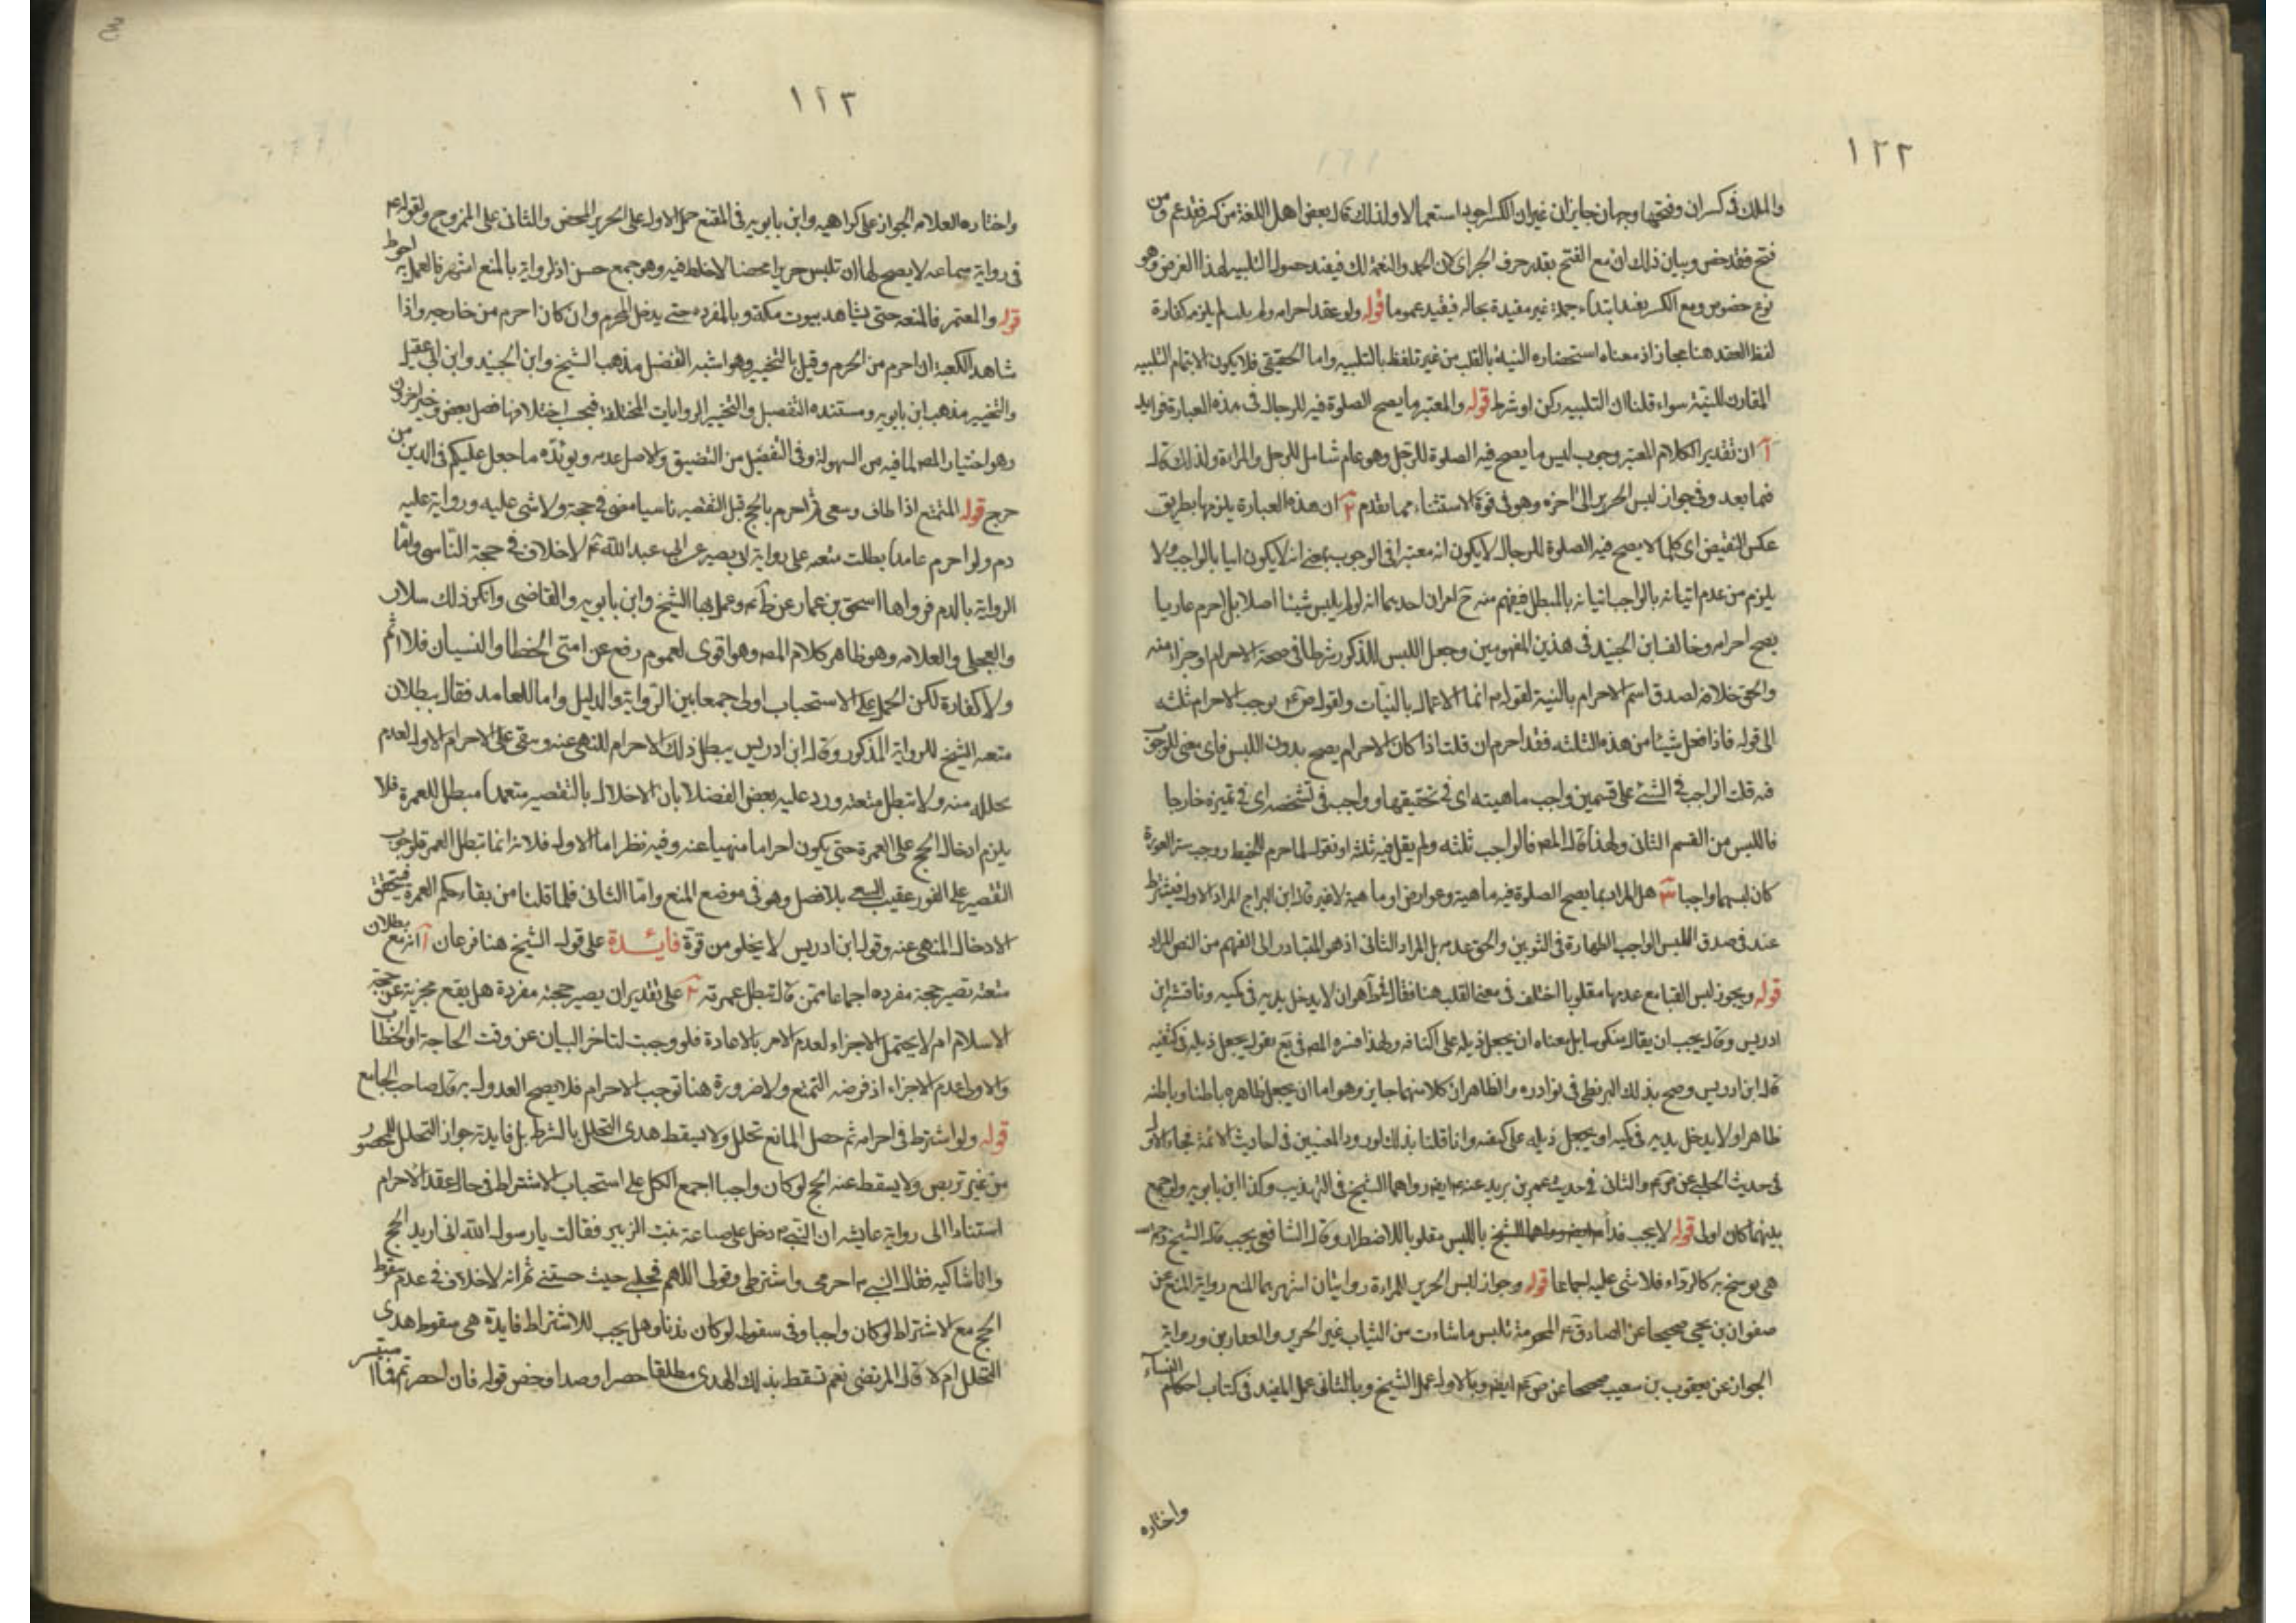 ١٢٢
والملك في كسر ان وفتحها وجهان جايزان غير ان الكسر اجود استعمالا ولذلك قال بعض اهل اللغة من كسر فقد عم ومن
فتح فقد خص وبيان ذلك ان مع الفتح يقدر حرف الجر اي لان الحمد والنعمة لك فيفيد حصول التلبيه لهذا الغرض وهو
نوع خصوص ومع الكسر يفيد ابتداء جملة غير مقيدة بحاله فيفيد عموما قوله ولو عقد احرامه ولم يلب لم يلزمه كفارة
لفظ العقد هنا مجاز اذ معناه استحضاره النية بالقلب من غير تلفظ بالتلبيه واما الحقيقي فلا يكون الا بتمام التلبيه
المقارن للنية سواء قلنا ان التلبيه ركن او شرط قوله والمعتبر ما يصح الصلوة فيه للرجال في هذه العبارة فوايد
آ ان تقدير الكلام المعتبر وجوب لبس ما يصح فيه الصلوة للرجل وهو عام شامل للرجل والمراءة ولذلك قال
فيما بعد وفي جواز لبس الحرير الى اخره وهو في قوة الاستثناء مما تقدم ٢ ان هذه العبارة يلزمها بطريق
عكس النقيض اي كلما لا يصح فيه الصلوة للرجال لا يكون انه معتبرا في الوجوب بمعنى انه لا يكون اتيا بالواجب ولا
يلزم من عدم اتيانه بالواجب اتيانه بالمبطل فيفهم منه ح امران احديهما انه لو لم يلبس شيئا اصلا بل احرم عاريا
يصح احرامه وخالف ابن الجنيد في هذين المفهومين وجعل اللبس المذكور شرطا في صحة الاحرام او جزاء منه
والحق خلافه لصدق اسم الاحرام بالنية لقوله م انما الاعمال بالنيات ولقوله ص ع يوجب الاحرام ثلثه
الى قوله فاذا فعل شيئا من هذه الثلثه فقد احرم ان قلت اذا كان الاحرام يصح بدون اللبس فاي معنى للوجوب
فيه قلت الواجب في الشئ على قسمين واجب ماهيته اي في تحقيقها وواجب في تشخصه اي في تميزه خارجا
فاللبس من القسم الثاني ولهذا قال المص فالواجب ثلثه ولم يقل فيه ثلثه او نقول لما حرم المخيط ووجب ستر العورة
كان لبسهما واجبا ٣ هل المراد بما يصح الصلوة فيه ماهية وعوارض او ماهية لا غير قال ابن البراج المراد الاول فيشترط
عنده في صدق اللبس الواجب الطهارة في الثوبين والحق عدمه بل المراد الثاني اذ هو المتبادر الى الفهم من النص المراد
قوله ويجوز لبس القبا مع عدمها مقلوبا اختلف في معنى القلب هنا فقال هو ان لا يدخل يديه في كميه وناقشه ابن
ادريس وقال يجب ان يقال منكوسا بل معناه ان يجعل ذيله على اكتافه ولهذا فسره المص في يع بقوله يجعل ذيله في كتفيه
قال ابن ادريس وصح بذلك البزنطي في نوادره والظاهر ان كلا منهما جايز وهو اما ان يجعل ظاهره باطنا وباطنه
ظاهرا ولا يدخل يديه في كميه او يجعل ذيله على كتفه وانا قلنا بذلك لورود المعنيين في احاديث الائمة فجاء الاول
في حديث الحلبي عن ص ع والثاني في حديث عمر بن يزيد عنه م ايضا رواهما الشيخ في التهذيب وكذا ابن بابويه ولو جمع
بينهما كان اولى قوله لا يجب فداء باللبس مقلوبا للاضطرار وقال الشافعي يجب قال الشيخ
هو توسخ به كالرداء فلا شي عليه اجماعا قوله وجواز لبس الحرير للمراءة روايتان اشهرهما المنع رواية المنع عن
صفوان بن يحيى صحيحا عن الصادق ع المحرمة تلبس ما شاءت من الثياب غير الحرير والقفازين ورواية
الجواز عن يعقوب بن سعيب صحيحا عن ص ع ايضا وبالاول عمل الشيخ وبالثاني عمل المفيد في كتاب احكام النساء
واختاره
١٢٣
واختاره العلامه الجواز على كراهيه وابن بابويه في المقنع حمل الاول على الحرير المحض والثاني على الممزوج ولقوله ع
في رواية سماعه لا يصح لها ان تلبس حريرا محضا لا خلط فيه وهو جمع حسن اذ الرواية بالمنع اشهر فالعمل به احوط
قوله والمعتمر فالمتعه حتى يشاهد بيوت مكة وبالمفرده حتى يدخل الحرم وان كان احرم من خارجه واذا
شاهد الكعبة ان احرم من الحرم وقيل بالتخيير وهو اشبه التفصيل مذهب الشيخ وابن الجنيد وابن ابي عقيل
والتخيير مذهب ابن بابويه ومستنده التفصيل والتخيير الروايات المختلفة فبحسب اختلافها فصل بعض وخير اخرون
وهو اختيار المص لما فيه من السهولة وفي التفصيل من التضييق والاصل عدمه ويؤيده ما جعل عليكم في الدين من
حرج قوله المتمتع اذا طاف وسعى ثم احرم بالحج قبل التقصير ناسيا مضى في حجة ولا شي عليه ورواية عليه
دم ولو احرم عامدا بطلت متعه على رواية ابي بصير عن ابي عبد الله ع لا خلاف في حجة الناسي واما
الرواية بالدم فرواها اسحق بن عمار عن ظ ع وعمل بها الشيخ وابن بابويه والقاضي وانكر ذلك سلار
والعجلي والعلامه وهو ظاهر كلام المص وهو اقوى لعموم رفع عن امتي الخطا والنسيان فلا اثم
ولا كفارة لكن الحمل على الاستحباب اولى جمعا بين الرواية والدليل واما للعامد فقال ببطلان
متعه الشيخ للرواية المذكور وقال ابن ادريس يبطل ذلك الاحرام للنهى عنه ويبقى على الاحرام الاول لعدم
تحلله منه ولا تبطل متعته ورد عليه بعض الفضلا بان الاخلال بالتقصير متعمدا مبطل للعمرة فلا
يلزم ادخال الحج على العمرة حتى يكون احراما منهيا عنه وفيه نظر اما الاول فلانه انما تبطل العمرة لوجوب
التقصير على الفور عقيب السعي بلا فصل وهو في موضع المنع واما الثاني فلما قلنا من بقاء حكم العمرة فيتحقق
الادخال المنهى عنه وقول ابن ادريس لا يخلو من قوة فائدة على قول الشيخ هنا فرعان آ انه مع بطلان
متعته تصير حجة مفرده اجماعا ممن قال تبطل عمرته ٢ على تقدير ان يصير حجة مفردة هل يقع مجزية عن حجة
الاسلام ام لا يحتمل الاجزاء لعدم الامر بالاعادة فلو وجبت لتاخر البيان عن وقت الحاجة او الخطاب
والاولى عدم الاجزاء اذ فرضه التمتع ولا ضرورة هنا توجب الاحرام فلا يصح العدول به وقال صاحب الجامع
قوله ولو اشترط في احرامه ثم حصل المانع تحلل ولا يسقط هدى التحلل بالشرط بل فايدته جواز التحلل للمحصور
من غير تربص ولا يسقط عنه الحج لو كان واجبا اجمع الكل على استحباب الاشتراط في حال عقد الاحرام
استنادا الى رواية عايشه ان النبي م دخل على صباعة بنت الزبير فقالت يا رسول الله اني اريد الحج
وانا شاكيه فقال النبي م احرمى واشترطى وقولى اللهم فحلي حيث حبستني ثم انه لا خلاف في عدم سقوط
الحج مع الاشتراط لو كان واجبا وفي سقوطه لو كان ندبا وهل يجب للاشتراط فايدة هي سقوط هدى
التحلل ام لا قال المرتضى نعم تسقط بذلك الهدى مطلقا حصرا وصدا وخص قوله فان احصرتم فما استيسر